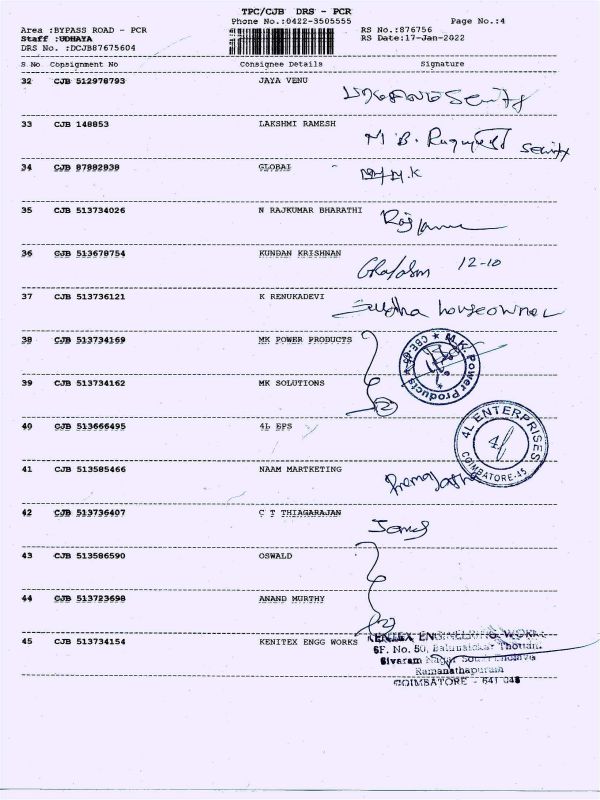 TPC/CJB DRS - PCR
Phone No.:0422-3505555 Page No.:4
Area :BYPASS ROAD - PCR RS No.:876756
Staff :UDHAYA RS Date:17-Jan-2022
DRS No. :DCJB87675604
S No Consignment No Consignee Details Signature
32 CJB 512978793 JAYA VENU
33 CJB 148853 LAKSHMI RAMESH
34 CJB 87882838 GLOBAL
35 CJB 513734026 N RAJKUMAR BHARATHI
36 CJB 513678754 KUNDAN KRISHNAN 12-10
37 CJB 513736121 K RENUKADEVI Sudha houseowner
38 CJB 513734169 MK POWER PRODUCTS M.K. Power Products CBE-45
39 CJB 513734162 MK SOLUTIONS
40 CJB 513666495 4L EPS 4L ENTERPRISES COIMBATORE-45
41 CJB 513585466 NAAM MARTKETING
42 CJB 513736407 C T THIAGARAJAN
43 CJB 513586590 OSWALD
44 CJB 513723698 ANAND MURTHY
45 CJB 513734154 KENITEX ENGG WORKS KENITEX ENGINEERING WORKS
SF. No. 50,
Sivaram Nagar South
Ramanathapuram
COIMBATORE - 641 045